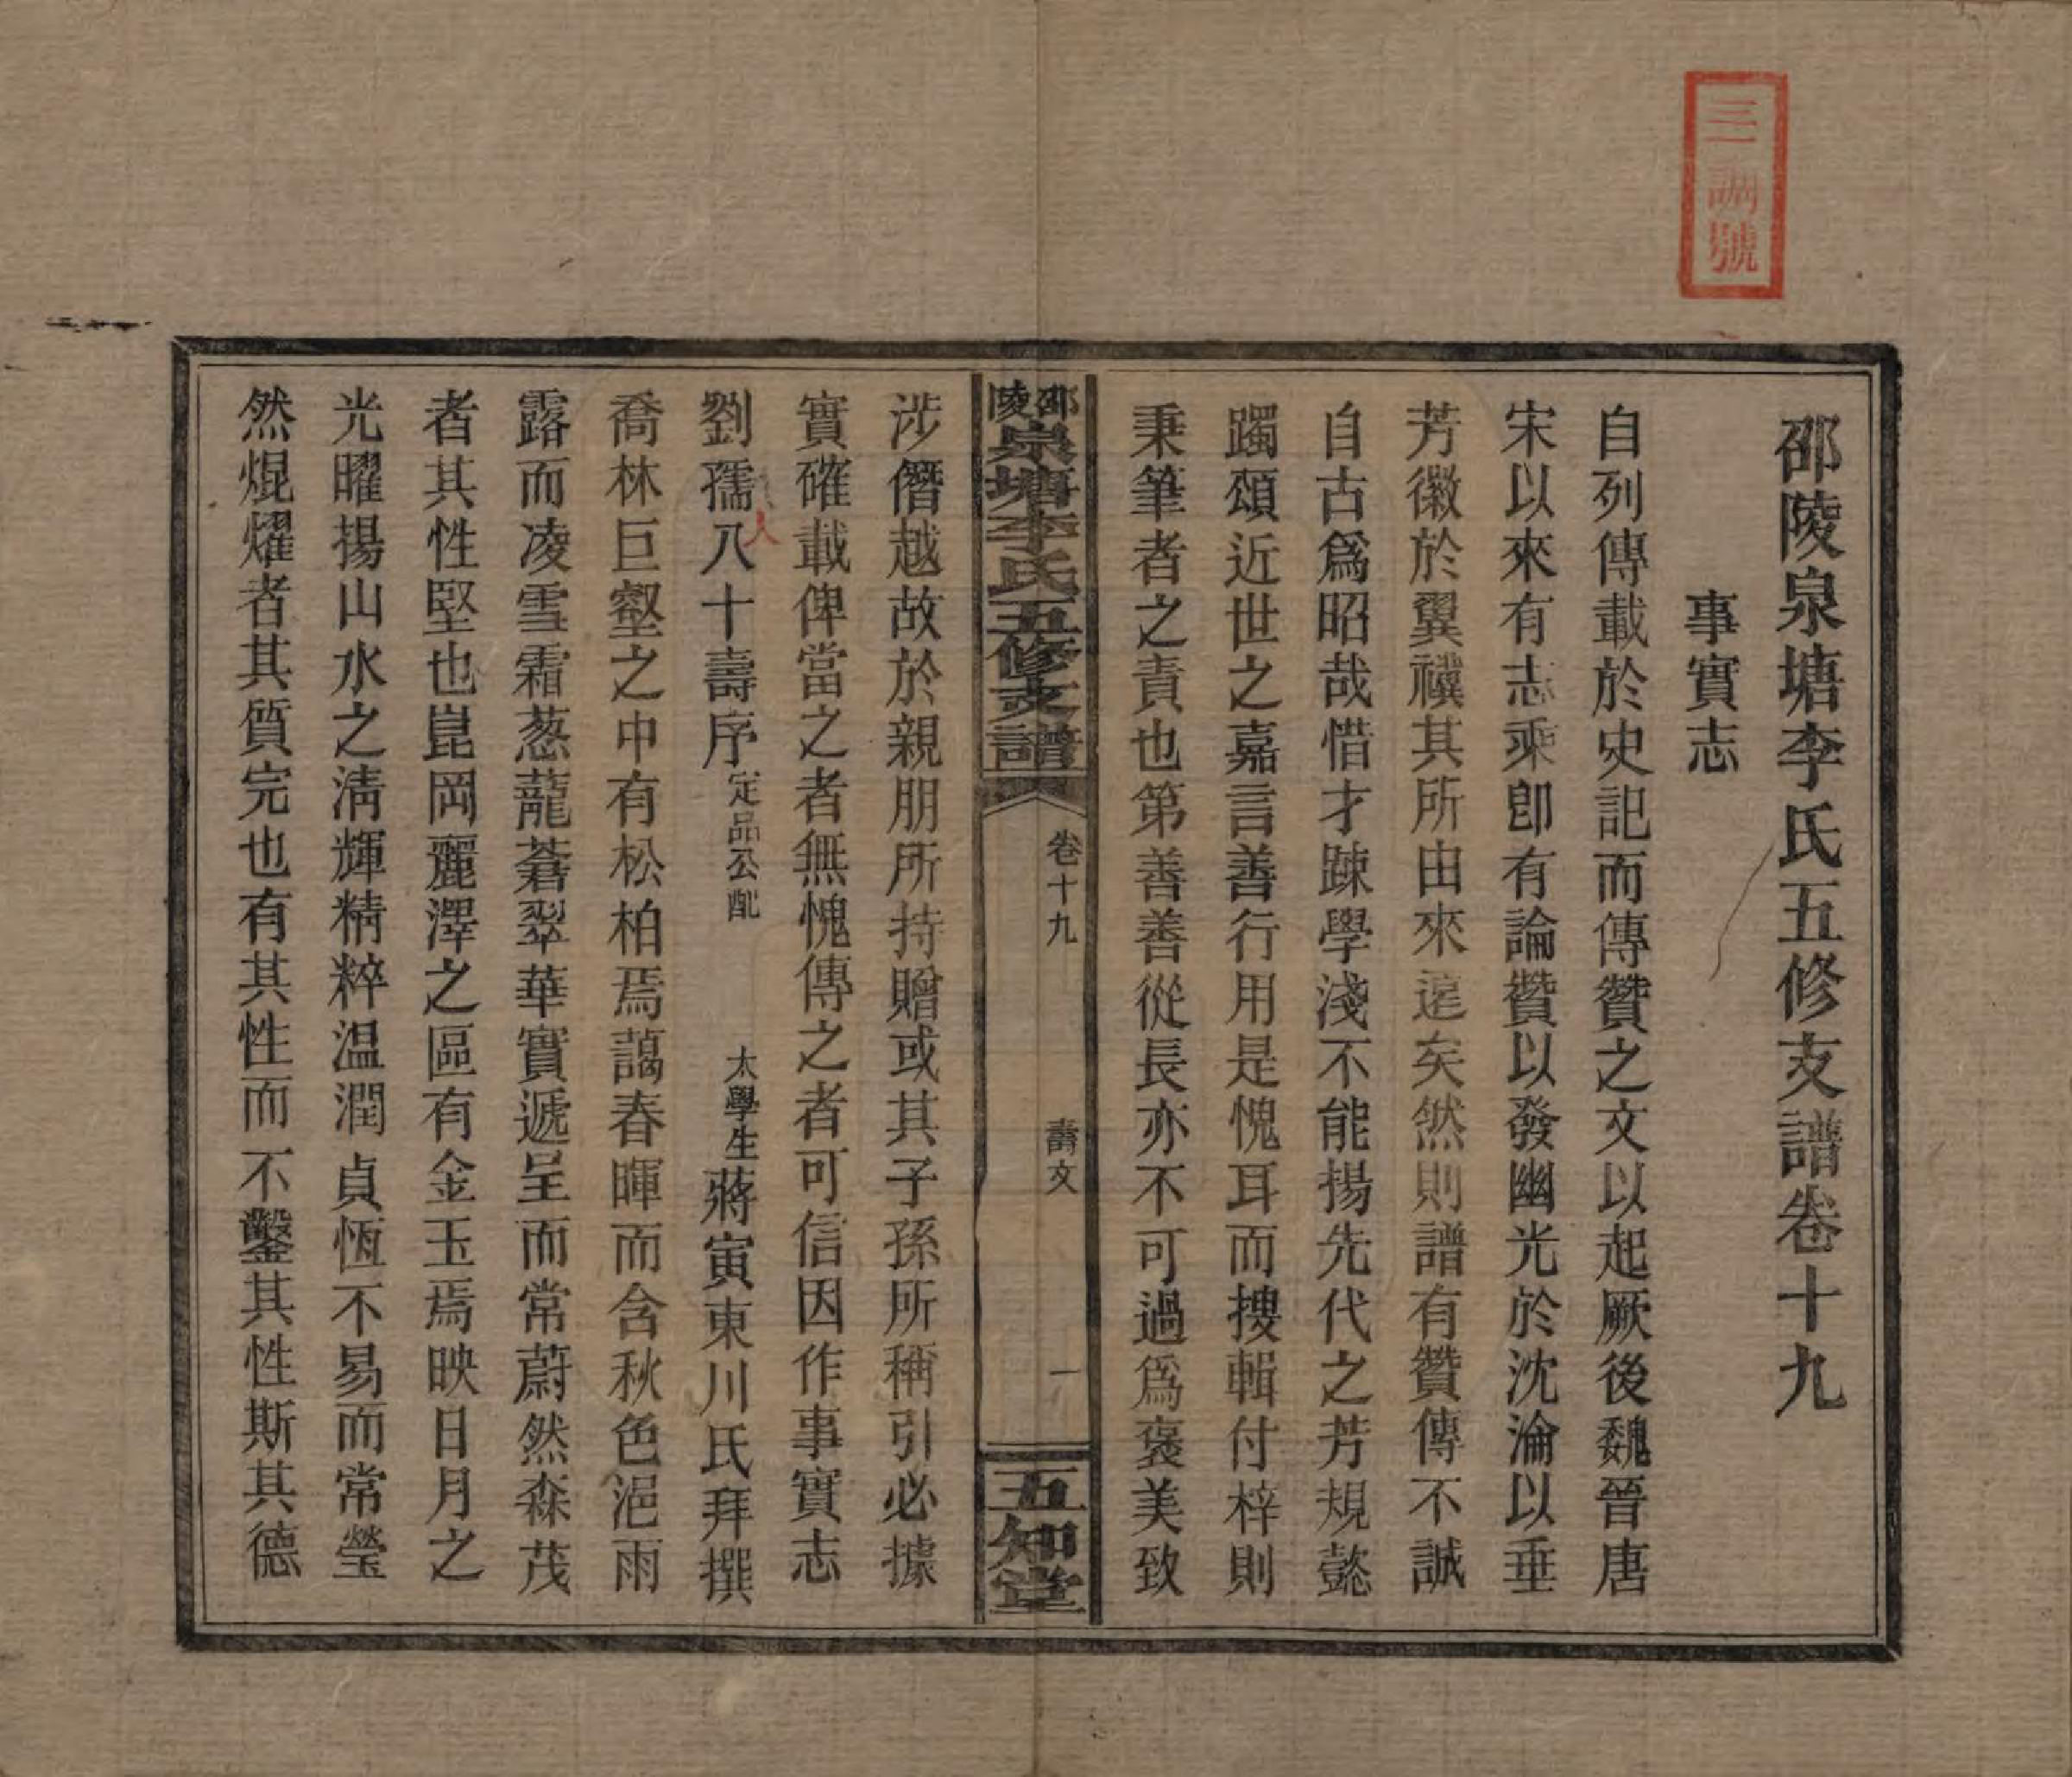 三調號
邵陵泉塘李氏五修支譜卷十九
事實志
自列傳載於史記而傳贊之文以起厥後魏晉唐
宋以來有志乘卽有論贊以發幽光於沈淪以垂
芳徽於翼禩其所由來遠矣然則譜有贊傳不誠
自古爲昭哉惜才踈學淺不能揚先代之芳規懿
躅頌近世之嘉言善行用是愧耳而搜輯付梓則
秉筆者之責也第善善從長亦不可過爲褒美致
邵陵泉塘李氏五修支譜
卷十九
壽文
一
五知堂
涉僭越故於親朋所持贈或其子孫所稱引必據
實確載俾當之者無愧傳之者可信因作事實志
劉孺人八十壽序 定品公配 太學生蔣寅東川氏拜撰
喬林巨壑之中有松柏焉藹春暉而含秋色浥雨
露而凌雪霜葱蘢蒼翠華實遞呈而常蔚然森茂
者其性堅也崑岡麗澤之區有金玉焉映日月之
光曜揚山水之淸輝精粹温潤貞恆不易而常瑩
然焜燿者其質完也有其性而不鑿其性斯其德